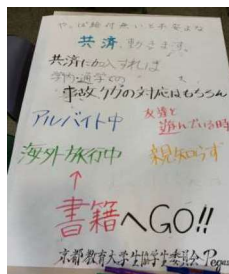 共済、動きます。
共済に加入すれば
事故、ケガの対応はもちろん
アルバイト中
友達と
遊んでいる時
海外旅行中
親知らず
↑
書籍へGO!!
京都教育大学生協学生委員会